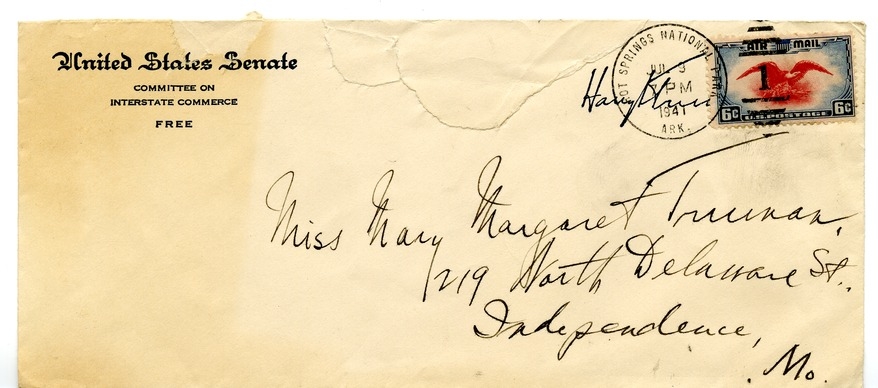 United States Senate
COMMITTEE ON
INTERSTATE COMMERCE
FREE
HOT SPRINGS NATIONAL
JUL 3
7 PM
1941
ARK.
AIR MAIL
1
6c 6c
U.S. POSTAGE
Miss Mary Margaret Truman,
219 North Delaware St.,
Independence,
Mo.